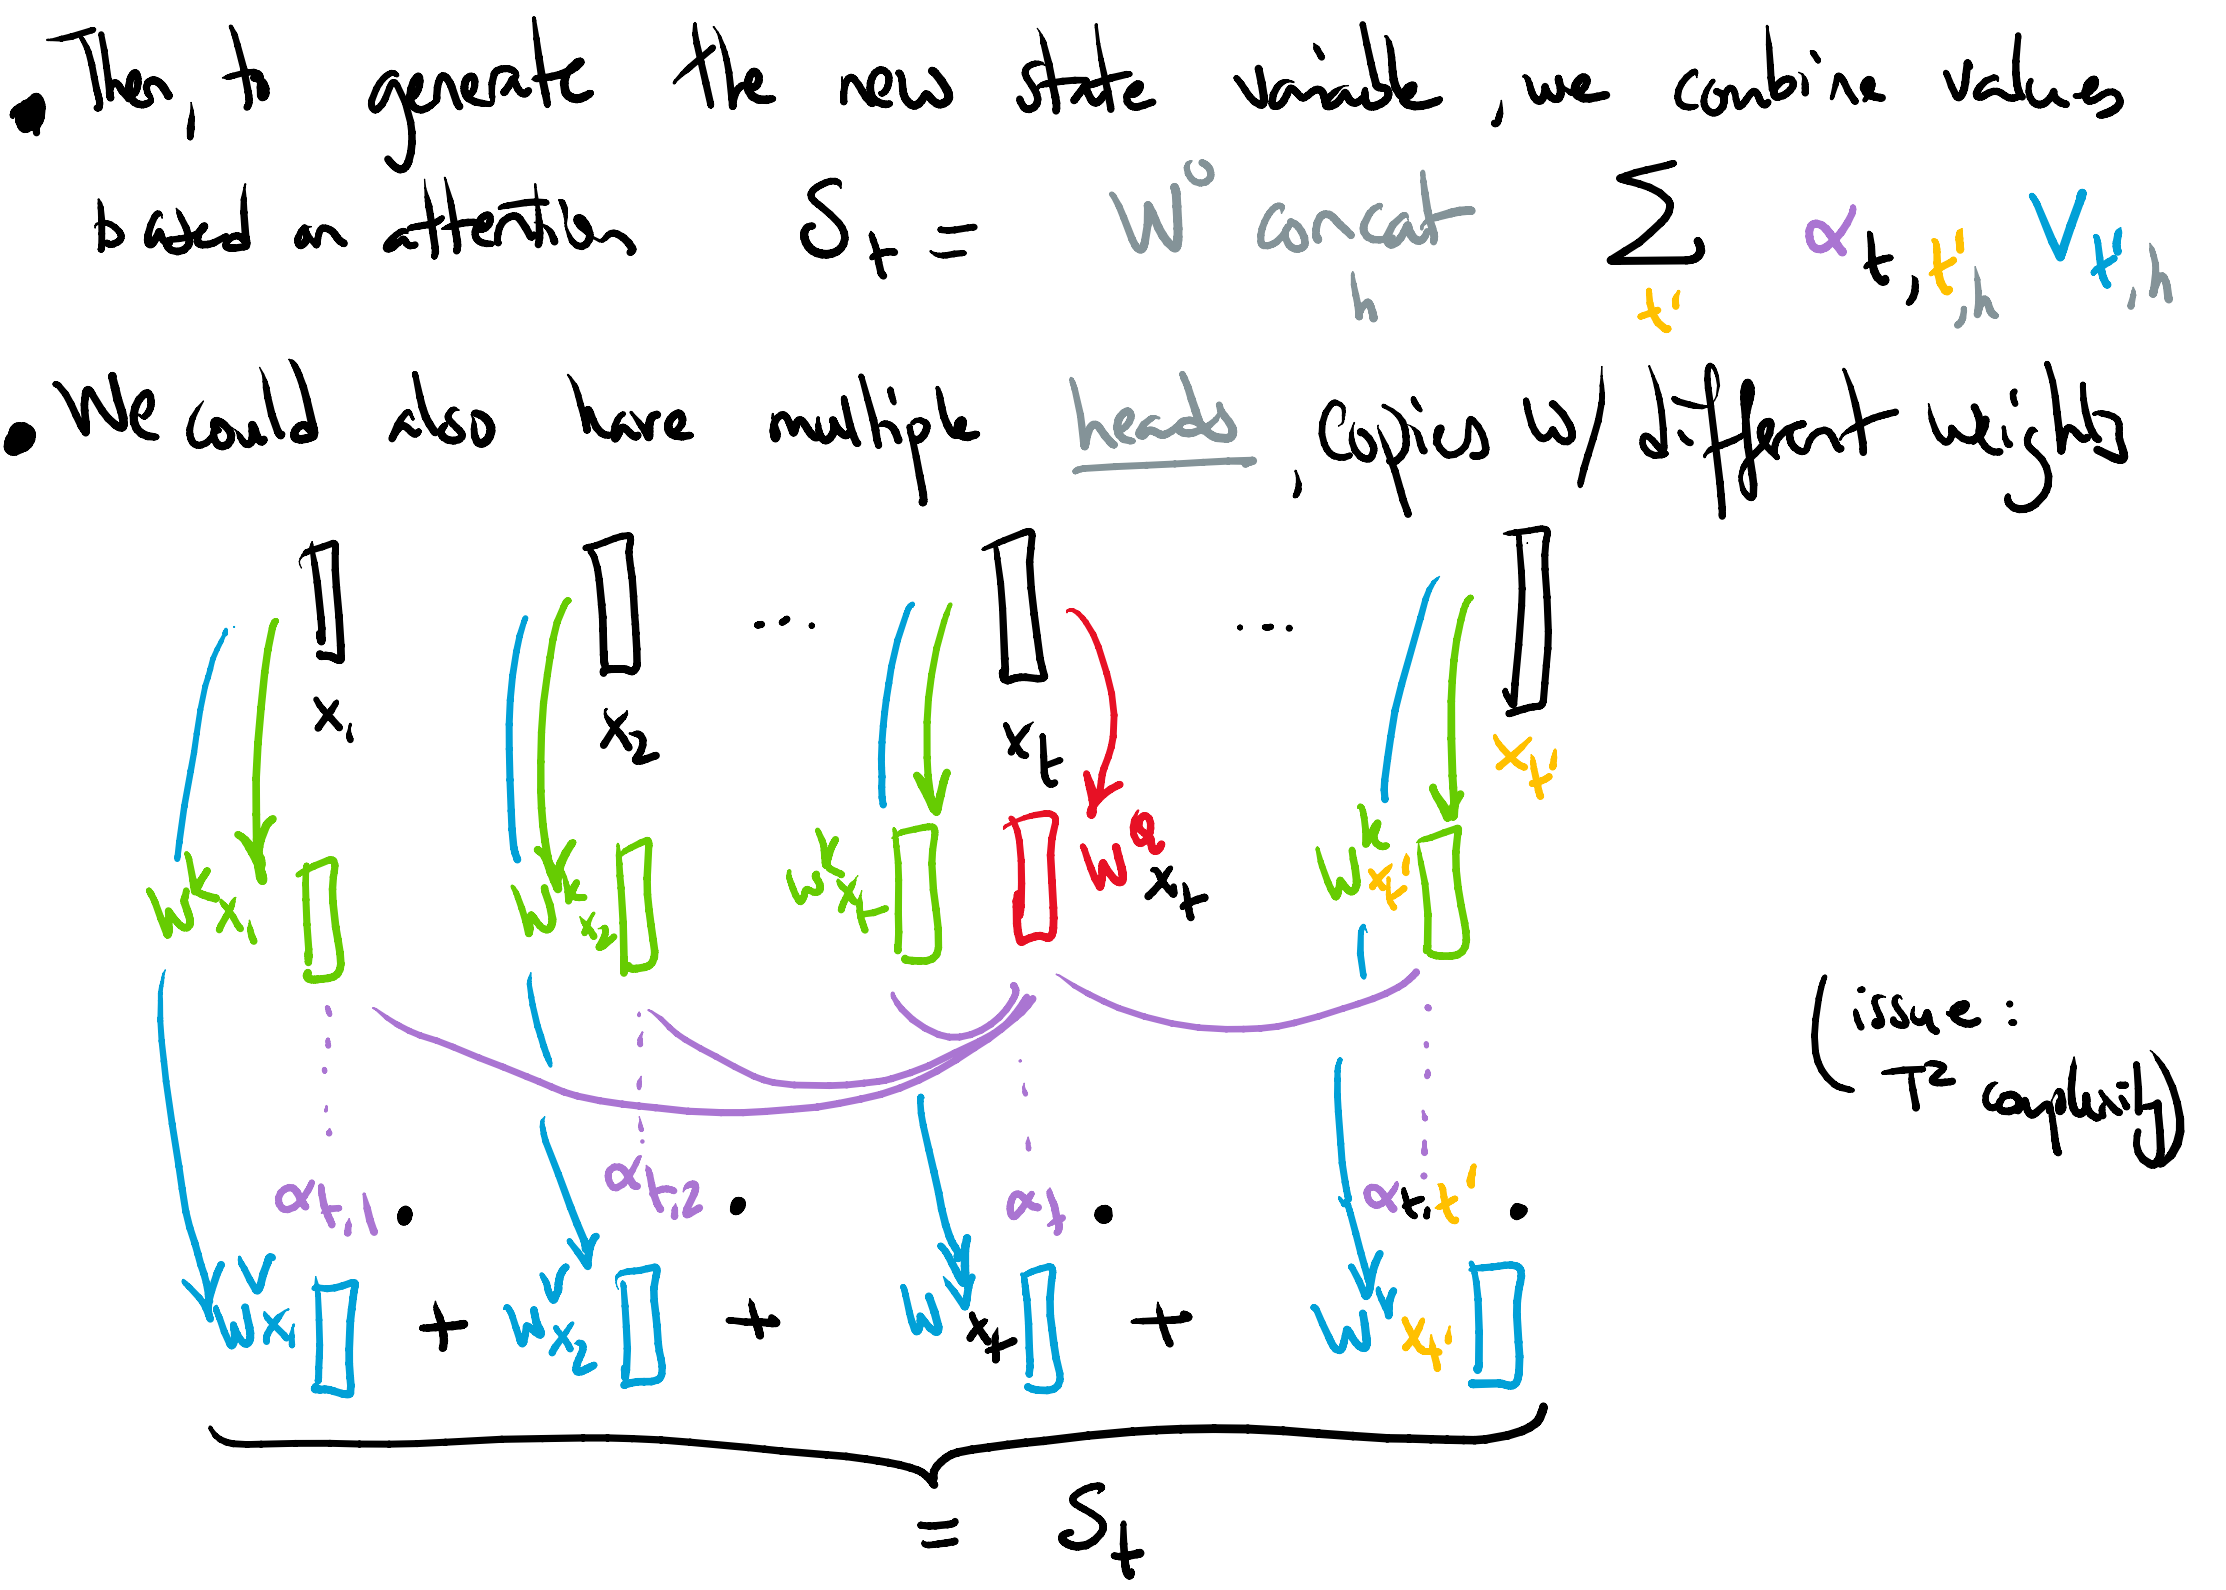 • Then, to generate the new state variable, we combine values
based on attention S_t = W^O concat_h Σ_t' α_t,t',h V_t',h
• We could also have multiple heads, copies w/ different weights
x_1 x_2 ... x_t ... x_t'
W^K x_1 W^K x_2 W^K x_t W^Q x_t W^K x_t'
(issue:
T^2 complexity)
α_t,1 • α_t,2 • α_t • α_t,t' •
W^V x_1 + W^V x_2 + W x_t + W^V x_t'
= S_t